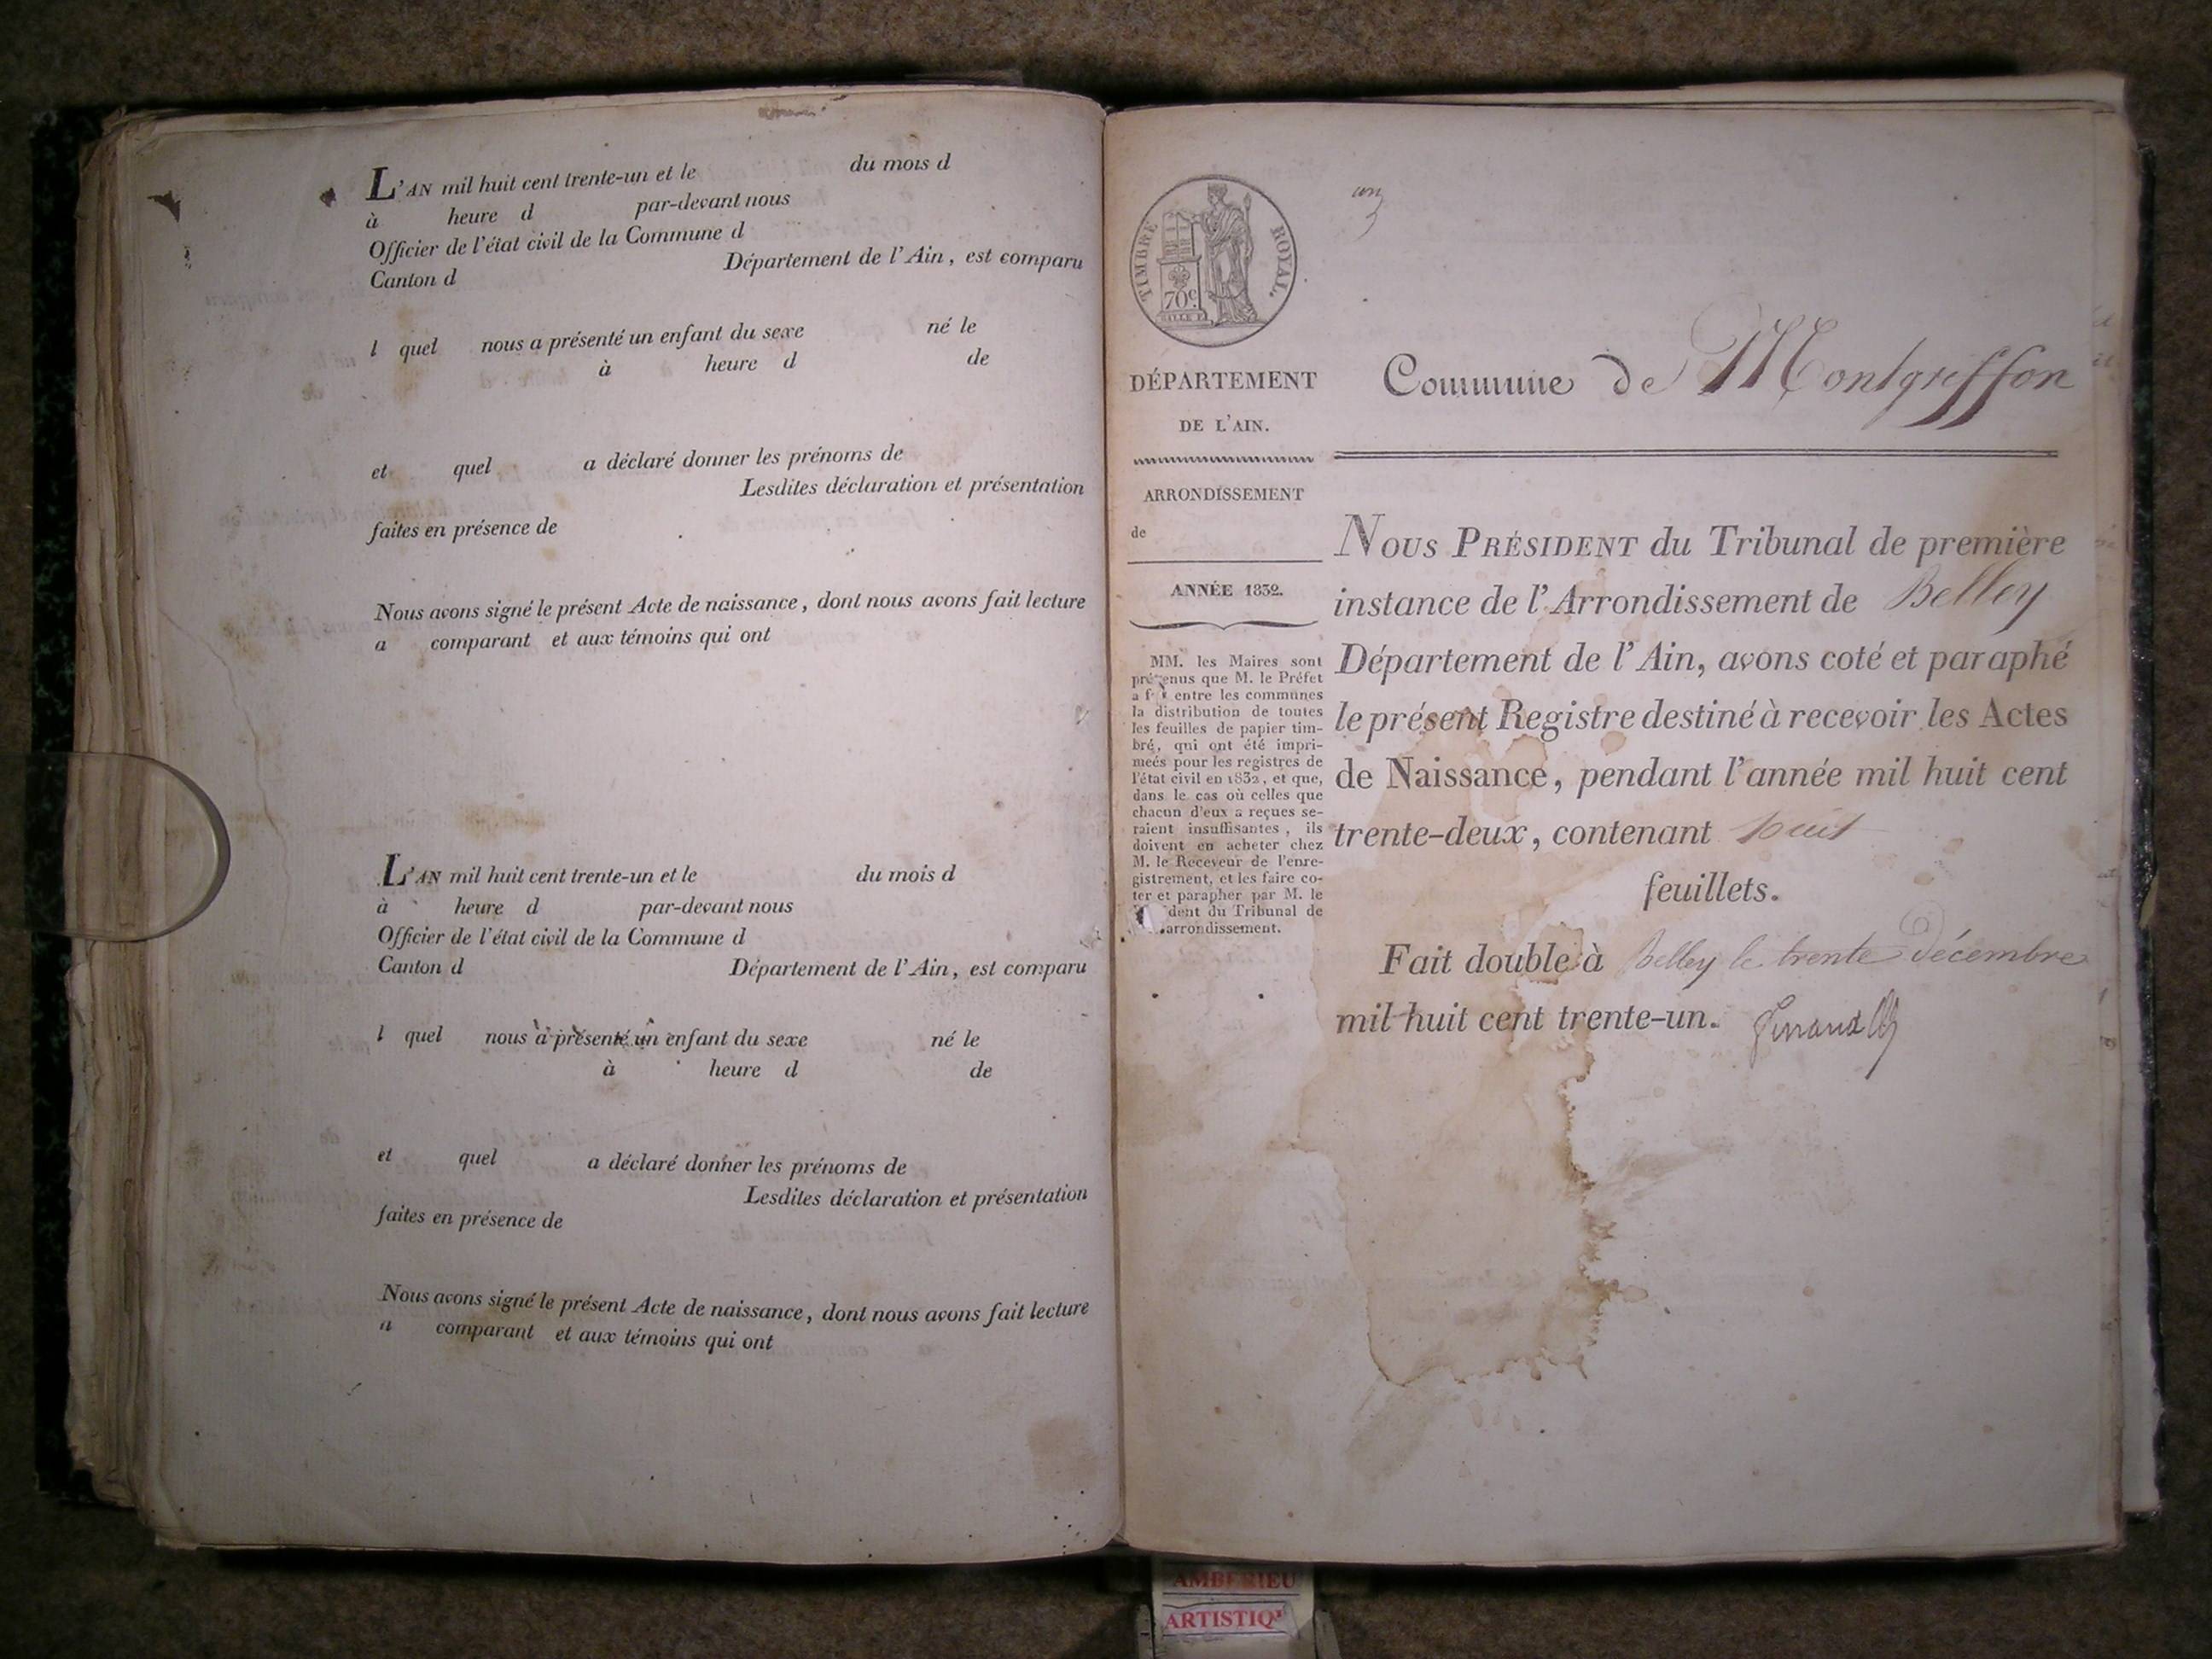 L'AN mil huit cent trente-un et le du mois d
à heure d par-devant nous
Officier de l'état civil de la Commune d
Canton d Département de l'Ain, est comparu
l quel nous a présenté un enfant du sexe né le
à heure d de
et quel a déclaré donner les prénoms de
Lesdites déclaration et présentation
faites en présence de
Nous avons signé le présent Acte de naissance, dont nous avons fait lecture
a comparant et aux témoins qui ont
L'AN mil huit cent trente-un et le du mois d
à heure d par-devant nous
Officier de l'état civil de la Commune d
Canton d Département de l'Ain, est comparu
l quel nous a présenté un enfant du sexe né le
à heure d de
et quel a déclaré donner les prénoms de
Lesdites déclaration et présentation
faites en présence de
Nous avons signé le présent Acte de naissance, dont nous avons fait lecture
a comparant et aux témoins qui ont
un
TIMBRE ROYAL.
70c.
DÉPARTEMENT
DE L'AIN.
ARRONDISSEMENT
de
ANNÉE 1832.
MM. les Maires sont
prévenus que M. le Préfet
a entre les communes
la distribution de toutes
les feuilles de papier tim-
bré, qui ont été impri-
meés pour les registres de
l'état civil en 1832, et que,
dans le cas où celles que
chacun d'eux a reçues se-
raient insuffisantes, ils
doivent en acheter chez
M. le Receveur de l'enre-
gistrement, et les faire co-
ter et parapher par M. le
dent du Tribunal de
arrondissement.
Commune de Montgriffon
NOUS PRÉSIDENT du Tribunal de première
instance de l'Arrondissement de Belley
Département de l'Ain, avons coté et paraphé
le présent Registre destiné à recevoir les Actes
de Naissance, pendant l'année mil huit cent
trente-deux, contenant huit
feuillets.
Fait double à Belley le trente décembre
mil huit cent trente-un.
AMBERIEU
ARTISTIQ